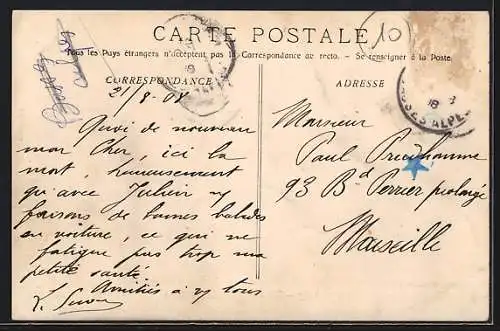 CARTE POSTALE
10
Tous les Pays étrangers n'acceptent pas la Correspondance au recto. — Se renseigner à la Poste.
CORRESPONDANCE
21/8.08
Quoi de nouveau
mon Cher, ici la
mort, heureusement
qu'avec Julien ns
faisons de bonnes balades
en voiture, ce qui ne
fatigue pas trop ma
petite santé.
Amitiés à vs tous
ADRESSE
Monsieur
Paul Prudhomme
93 Bd Perrier prolongé
Marseille
BASSES ALPES